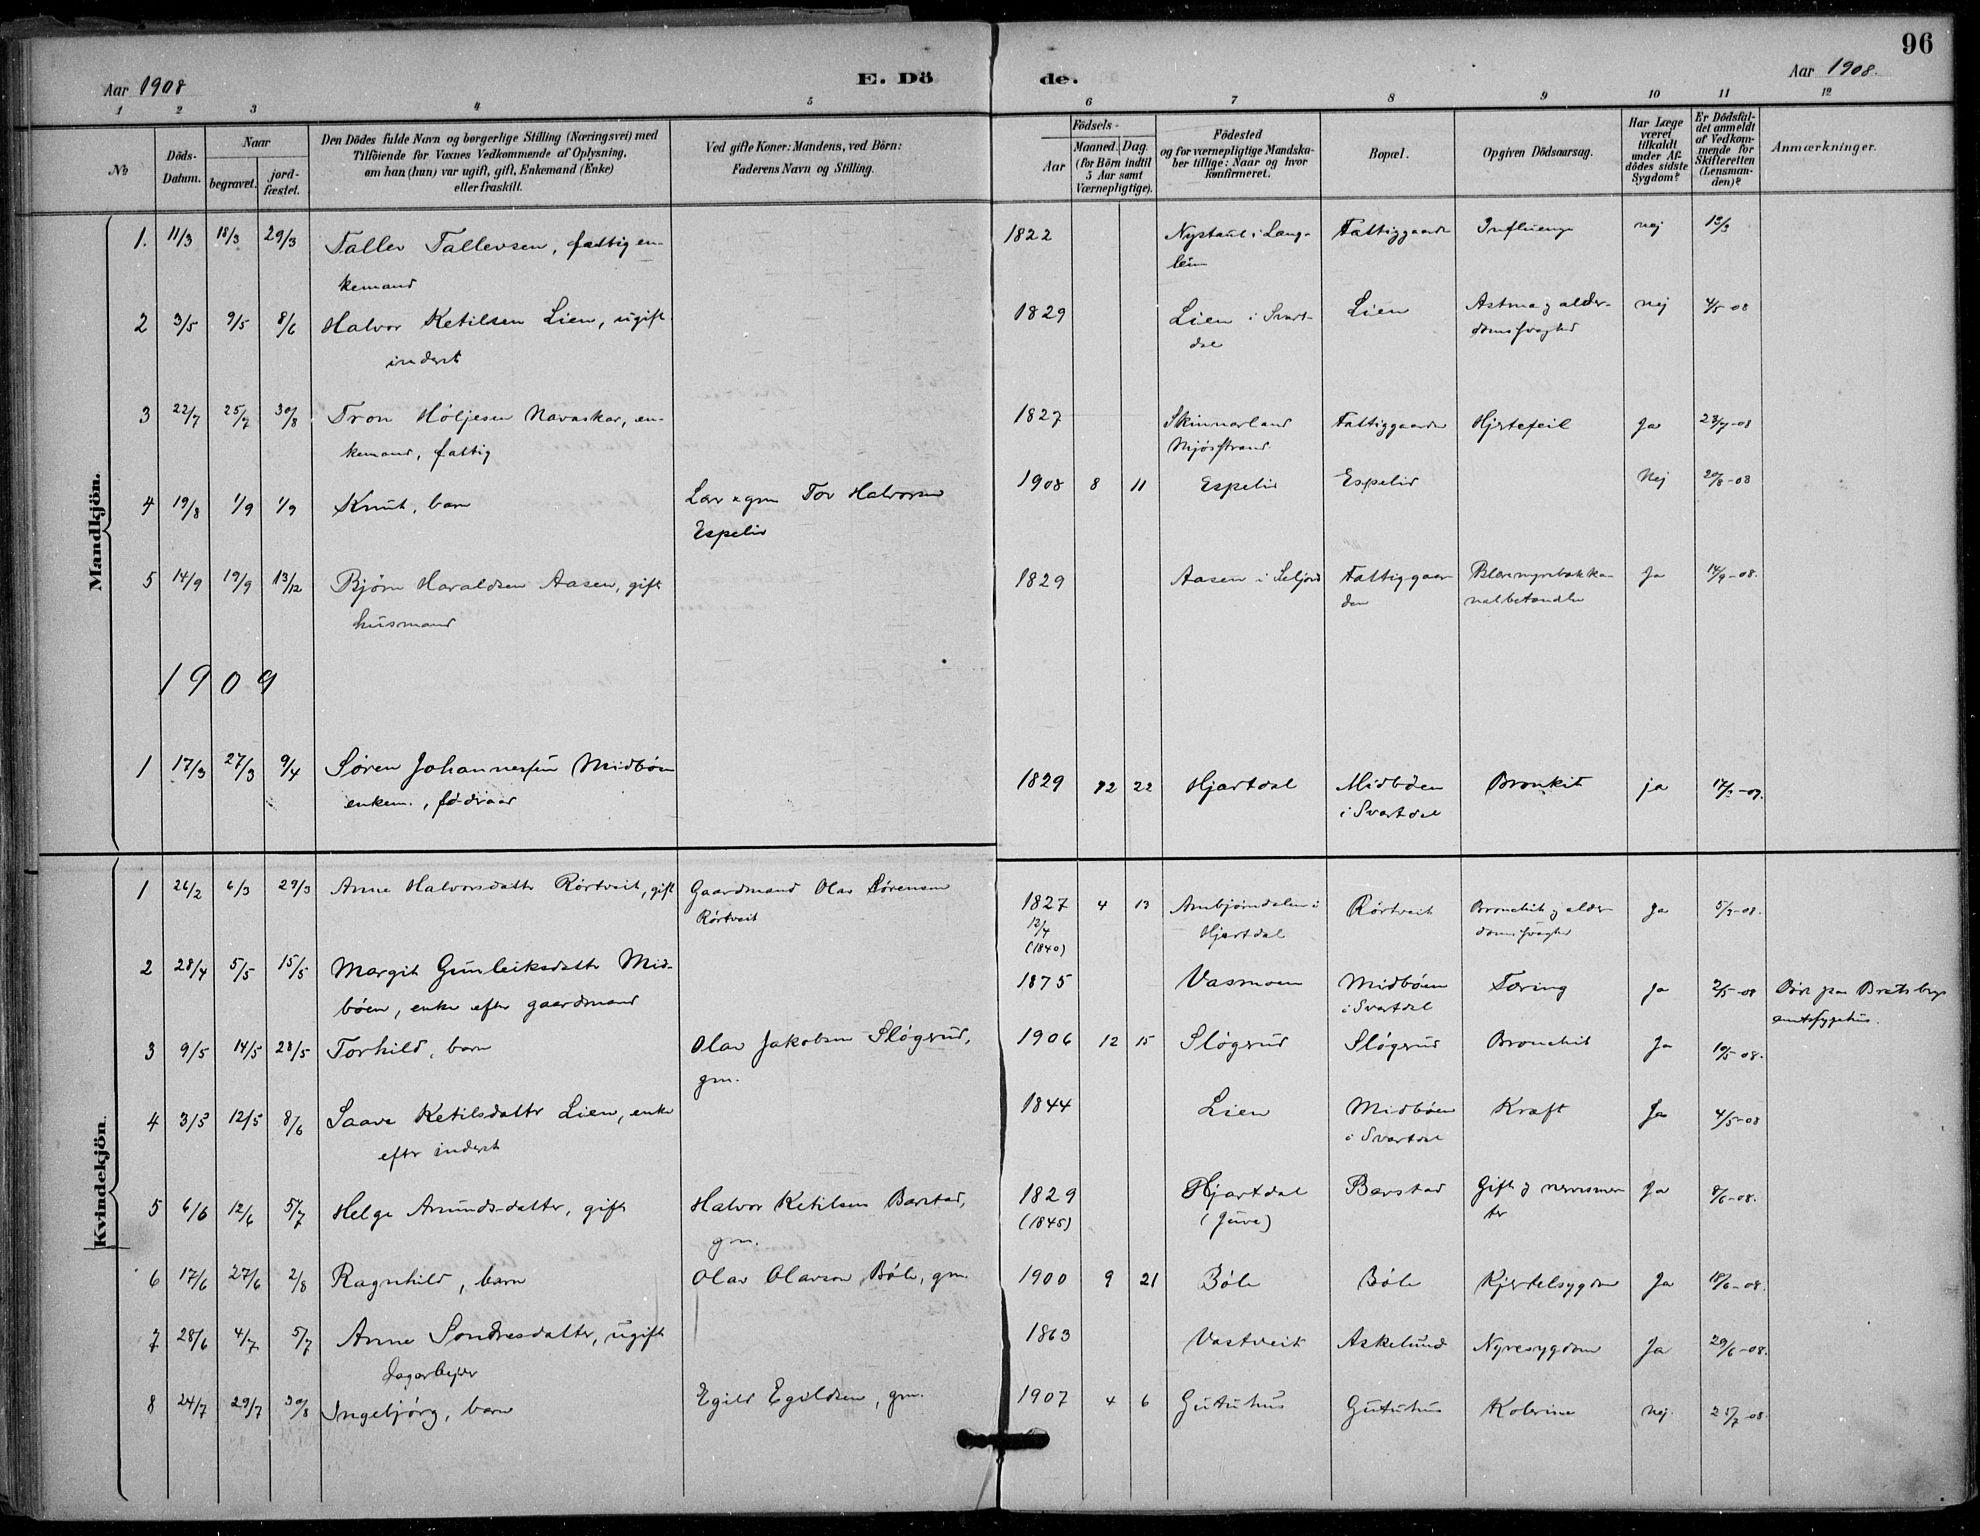 96
Aar 1908
E. Dö
de.
Aar 1908.
1 2 3 4 5 6 7 8 9 10 11 12
No
Döds-Datum.
Naar
begravet.
jord-fæstet.
Den Dödes fulde Navn og borgerlige Stilling (Næringsvei) med
Tilföiende for Voxnes Vedkommende af Oplysning,
om han (hun) var ugift, gift, Enkemand (Enke)
eller fraskilt.
Ved gifte Koner: Mandens, ved Börn:
Faderens Navn og Stilling.
Födsels-
Aar
Maaned. Dag.
(for Börn indtil
5 Aar samt
Værnepligtige).
Födested
og for værnepligtige Mandska-
ber tillige: Naar og hvor
konfirmeret.
Bopæl.
Opgiven Dödsaarsag.
Har Læge
været
tilkaldt
under Af-
dödes sidste
Sygdom?
Er Dödsfal-
det anmeldt
af Vedkom-
mende for
Skifteretten
(Lensman-
den)?
Anmærkninger.
Mandkjön.
1. 11/3 18/3 29/3 Tallev Tallevsen, fattig en- 1822 Fattiggaarden nej
kemand
2 3/5 9/5 8/6 Halvor Ketilsen Lien, ugift 1829 Lien i Svart- Lien Astma & alder- nej 4/5-08
inderst dal domssvaghed
3 22/7 25/7 30/8 Tron Høljesen Navaskar, en- 1827 Skinnarland Fattiggaarden Hjertefeil Ja 23/7-08
kemand, fattig Mjøsstrand
4 19/8 1/9 1/9 Knut, barn Tov Halvorsen 1908 8 11 Espelid Espelid Nej 20/8-08
Espelid
5 14/9 19/9 13/12 Bjørn Haraldsen Aasen, gift 1829 Aasen i Seljord Fattiggaar- Ja 14/9-08.
husmand den
1909
1 17/3 27/3 9/4 Søren Johannessen Midbøen 1829 12 22 Hjartdal Midbøen Bronkit ja
enkem., föderaad i Svartdal
Kvindekjön.
1 26/2 6/3 29/3 Anne Halvorsdatter Rørtveit, gift Gaardmand Olav Sørensen 1827 4 13 Arnbjørndalen i Rørtveit Bronchit & alder- Ja 5/3-08.
Rørtveit 12/4 Hjartdal domssvaghed
(1840)
2 28/4 5/5 15/5 Margit Gunleiksdatter Mid- 1875 Vasmoen Midbøen Tæring Ja 2/5-08 Død paa Bratsberg
bøen, enke efter gaardmand i Svartdal amtssygehus.
3 9/5 14/5 28/5 Torhild, barn Olav Jakobsen Sløgrud, 1906 12 15 Sløgrud Sløgrud Bronchit Ja 10/5-08.
gm.
4 3/5 12/5 8/6 Saave Ketilsdatter Lien, enke 1844 Lien Midbøen Kræft Ja 4/5-08
efter inderst i Svartdal
5 6/6 12/6 5/7 Helge Amunds-datter, gift Halvor Ketilsen Barstad, 1829 Hjartdal Barstad Ja 8/6-08.
gm. (1845) (Juve)
6 17/6 27/6 2/8 Ragnhild, barn Olav Olavson Bøle, gm. 1900 9 21 Bøle Bøle Kjertelsygdom Ja 18/6-08.
7 28/6 4/7 5/7 Anne Sondresdatter, ugift 1863 Vastveit Askelund Nyresygdom Ja 29/6-08.
Dagarbejder
8 24/7 29/7 30/8 Ingebjørg, barn Egild Egildsen, gm. 1907 4 6 Gutuhus Gutuhus Kolerine Nej. 25/7-08.